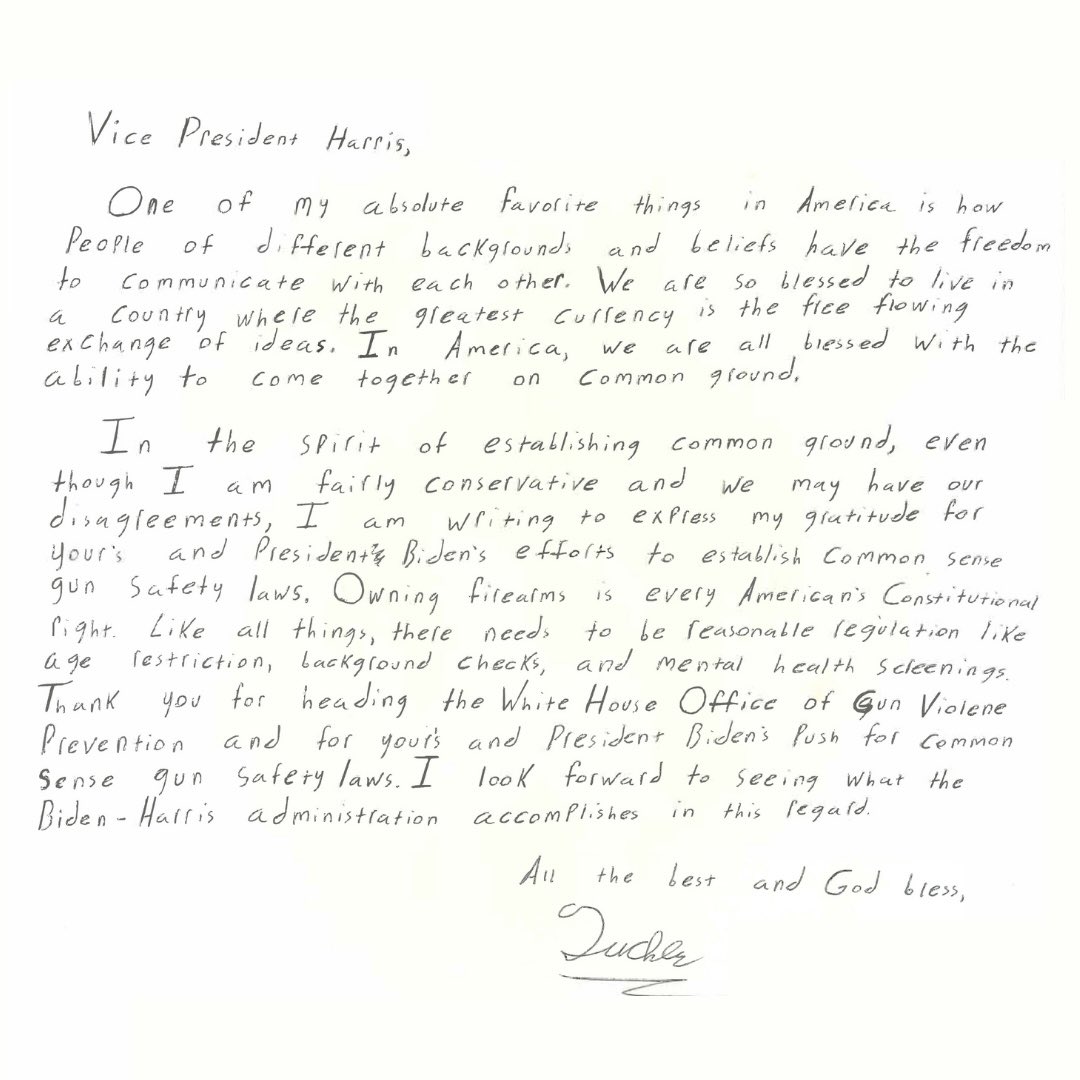 Vice President Harris,
One of my absolute favorite things in America is how
People of different backgrounds and beliefs have the freedom
to communicate with each other. We are so blessed to live in
a country where the greatest currency is the free flowing
exchange of ideas. In America, we are all blessed with the
ability to come together on common ground.
In the spirit of establishing common ground, even
though I am fairly conservative and we may have our
disagreements, I am writing to express my gratitude for
your's and President Biden's efforts to establish common sense
gun safety laws. Owning firearms is every American's Constitutional
right. Like all things, there needs to be reasonable regulation like
age restriction, background checks, and mental health screenings.
Thank you for heading the White House Office of Gun Violene
Prevention and for your's and President Biden's Push for common
sense gun safety laws. I look forward to seeing what the
Biden-Harris administration accomplishes in this regard.
All the best and God bless,
Tucker